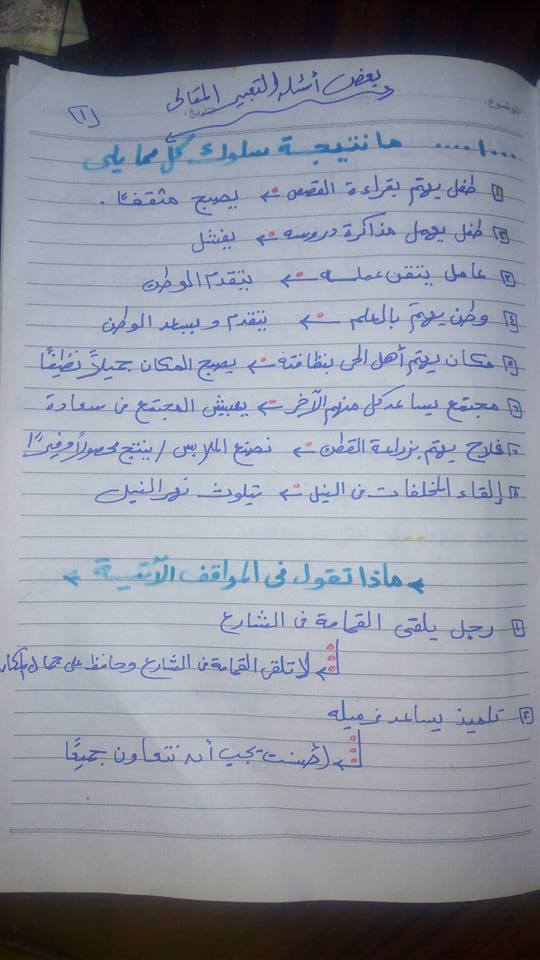 بعض أسئلة التعبير المقالى
(١)
الموضوع:
التاريخ:
١.... ما نتيجة سلوك كل مما يلى
١ طفل يهتم بقراءة القصص ← يصبح مثقفًا.
٢ طفل يهمل مذاكرة دروسه ← يفشل
٣ عامل يتقن عمله ← يتقدم الوطن
٤ وطن يهتم بالعلم ← يتقدم ويسعد الوطن
٥ مكان يهتم أهل الحى بنظافته ← يصبح المكان جميلاً نظيفًا
٦ مجتمع يساعد كل منهم الآخر ← يعيش المجتمع فى سعادة
٧ فلاح يهتم بزراعة القطن ← نصنع الملابس / ينتج محصولاً وفيرًا
٨ إلقاء المخلفات فى النيل ← تيلوث نهر النيل
ماذا تقول فى المواقف الآتية
١ رجل يلقى القمامة فى الشارع
← لا تلقى القمامة فى الشارع وحافظ على جمال المكان
٢ تلميذ يساعد زميله
← أحسنت يجب أن نتعاون جميعًا